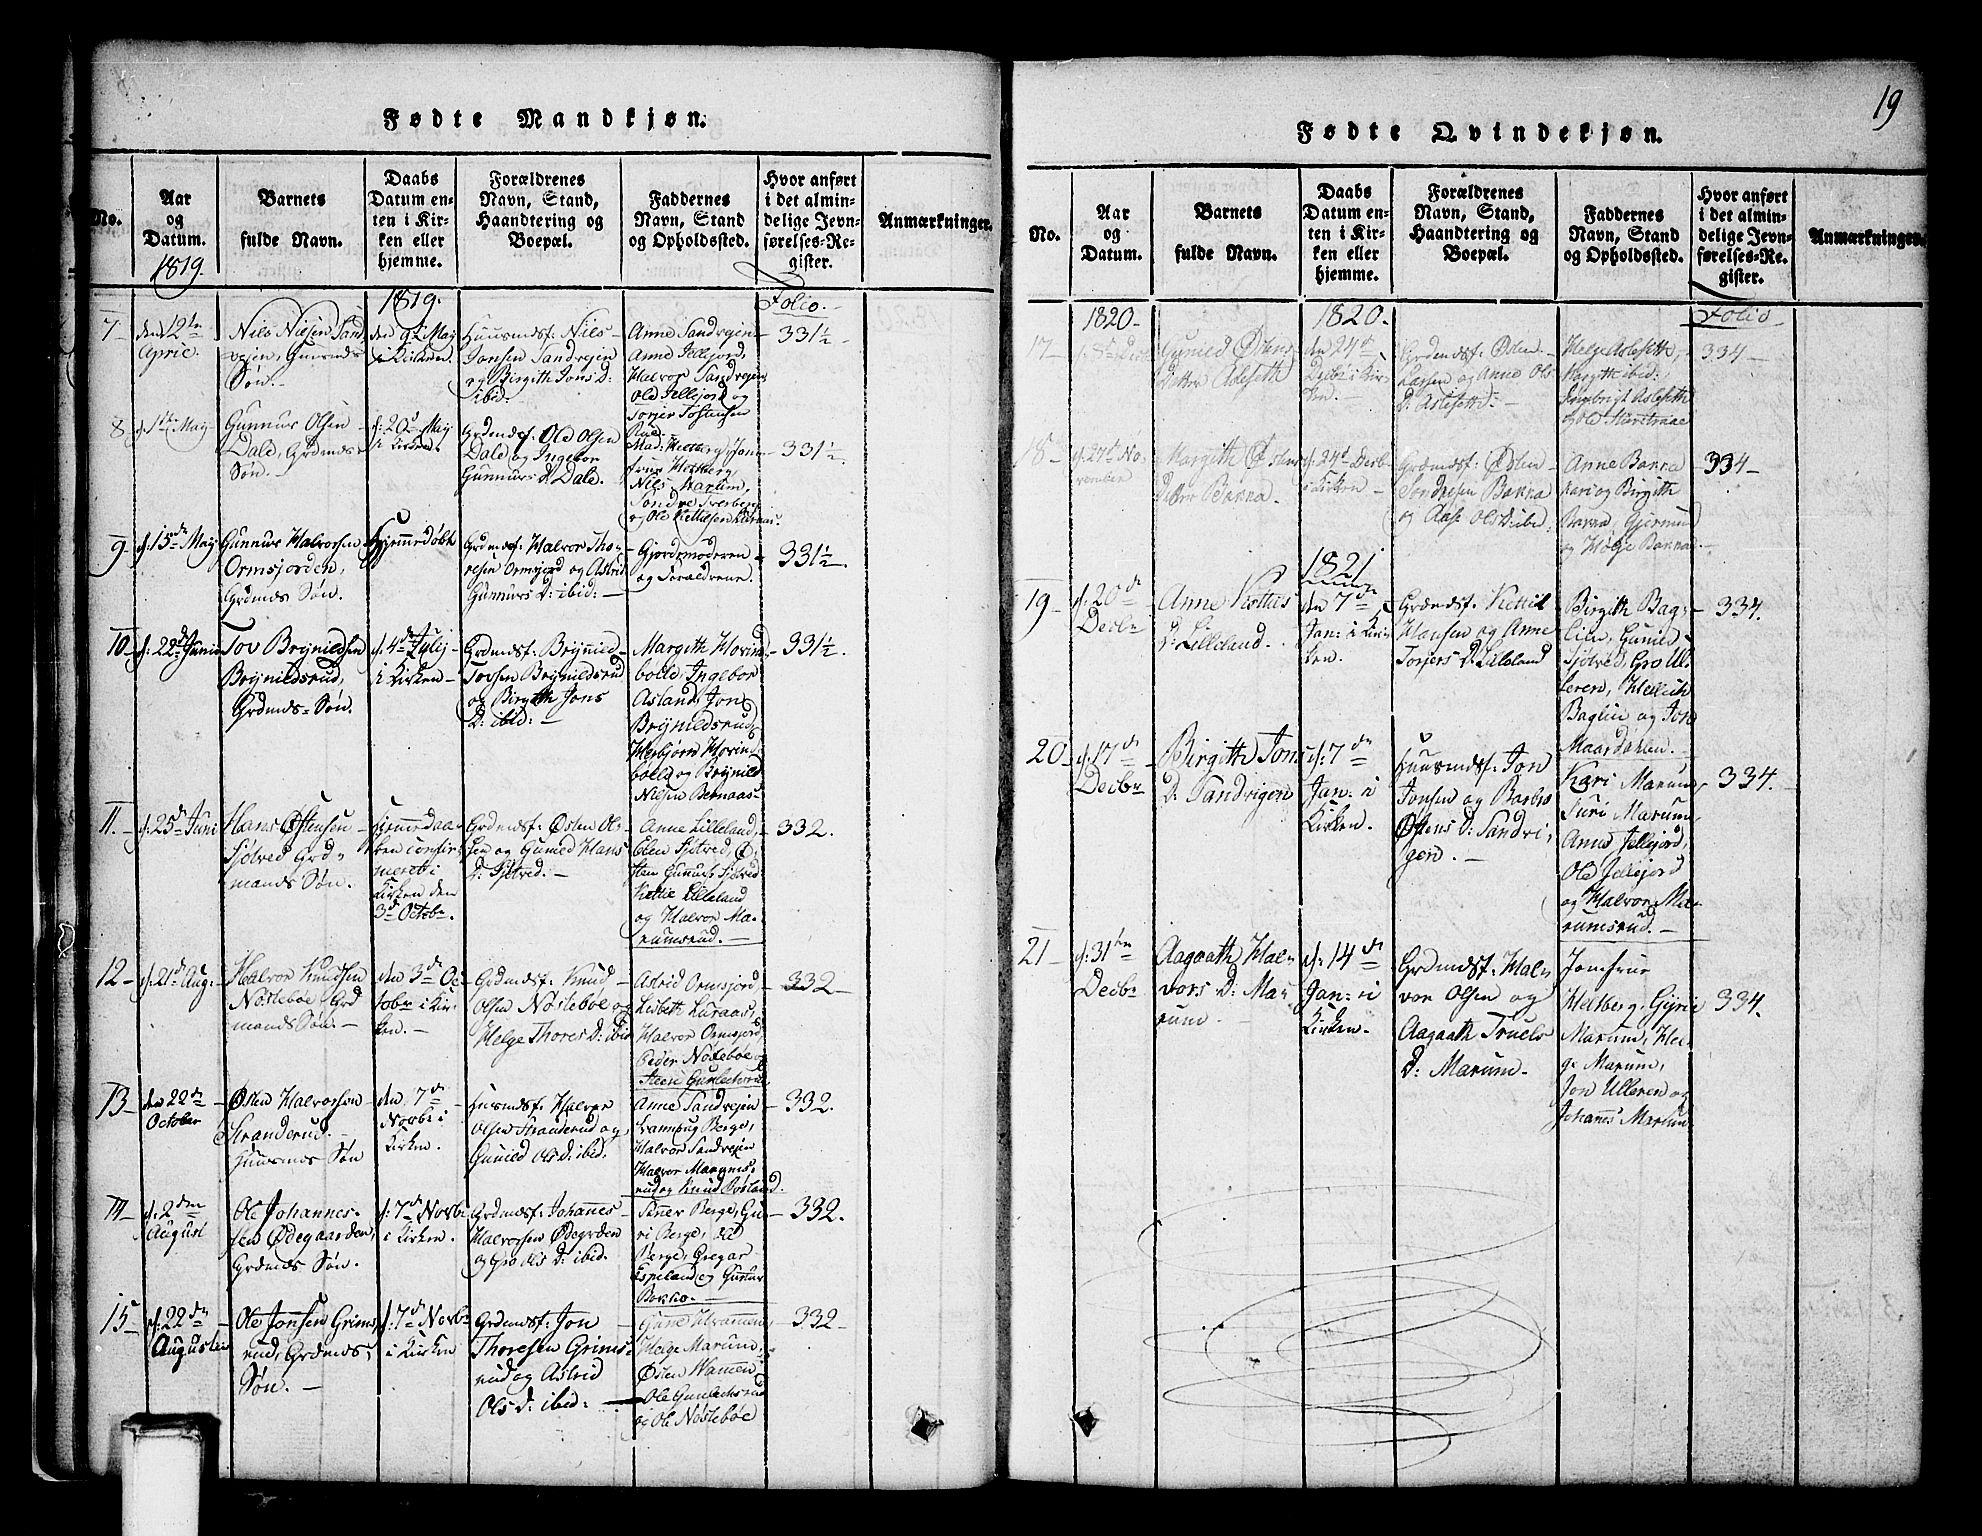 Fødte Mandkjøn.
No.
Aar
og
Datum.
1819.
Barnets
fulde Navn.
Daabs
Datum en-
ten i Kir-
ken eller
hjemme.
Forældrenes
Navn, Stand,
Haandtering og
Boepæl.
Faddernes
Navn, Stand
og Opholdssted.
Hvor anført
i det almin-
delige Jevn-
førelses-Re-
gister.
Anmærkninger.
1819.
Folio.
7
den 12te
April.
Nils Nilsen Sand
vejen, Huusmds
Søn.
den 9de Maj
i Kirken.
Huusmdsf. Nils
Jonsen Sandvejen
og Birgith Jons D:
ibid:
Anne Sandvejen
Anne Jellejord,
Halvor Sandvejen
Ole Jellejord og
Torjer Tostensen
Rue.
331½
8
d. 1ste Maj
Gunnur Olsen
Dale, Grdmds
Søn.
d. 20d Maj
i Kirken.
Grdmdsf. Ole Olsen
Dale og Ingebor
Gunnurs D. Dale.
Mad: Heltberg, Jom-
frue Heltberg,
Nils Marum,
Sondre
og Ole Kettilsen Luraas.
331½.
9
d. 15de Maj
Gunnur Halvorsen
Ormsjorden,
Grdmds Søn.
Hjemmedøbt
Grdmdsf. Halvor Tho-
resen Ormsjord og Astrid
Gunnurs D: ibid:
Gjordemoderen
og Forældrene.
331½.
10
d. 22d Junii
Tov Brynildsen
Brynildsrud,
Grdmds Søn.
d. 4de Julij
i Kirken
Grdmdsf. Brynild
Tovsen Brynildsrud
og Birgith Jons
D: ibid:
Margith Hovind
bolle, Ingebor
Asland, Jon
Brynildsrud,
Herbjørn Hovind
bolle og Brynild
Nielsen Bernaas
331½.
11.
d. 25de Juni
Hans Østensen
Sjøtved Grd-
mands Søn.
Hjemmedaa-
ben confir-
meret i
Kirken den
3d Octobr.
Grdmdsf. Østen Ol-
sen og Gunild Hans
D. Sjøtved.
Anne Lilleland,
Elen Sjøtved, Ø-
sten Gunurs Sjøtved
Kettil Lilleland
og Halvor Ma-
rumsrud.
332.
12
d. 21de Aug:
Halvor Knudsen
Nosteboe Grd
mands Søn.
den 3de Oc
tobr i Kir-
ken.
Grdmdsf. Knud
Olsen Nosteboe og
Helge Thores D: ibid
Astrid Ormsjord,
Lisbeth Luraas,
Halvor Ormsjord,
Peder Nosteboe og
Steen Gunleiksrud
332
13
den 22de
October
Østen Halvorsen
Stranderud.
Huusmds Søn
den 7de
Novbr i
Kirken.
Huusmdsf. Halvor
Olsen Stranderud og
Gunild Ols D: ibid.
Anne Sandvejen
Berge,
Halvor Sandvejen
Halvor Marums-
rud og Knud Bosland.
332.
14
d. 2den
August
Ole Johannes-
sen Ødegaarden,
Grdmds Søn.
d. 7de Novbr
i Kirken.
Grdmdsf. Johannes
Halvorsen Ødegrden
og Gro Ols D: ibid.
Berge, Gu-
ri Berge, Ole
Berge, Gregar
Espeland og Gunur
Bakka.
332.
15
d. 22de
Augusti
Ole Jonsen Grims
rud, Grdmds
Søn.
d. 7de Novbr
i Kirken
Grdmdsf. Jon
Thoresen Grims-
rud og Astrid
Ols D: ibid:
Helge Marum,
Østen Wamen
Ole Gunleiksrud
og Ole Nosteboe
332
19
Fødte Qvindekjøn.
No.
Aar
og
Datum.
Barnets
fulde Navn.
Daabs
Datum en-
ten i Kir-
ken eller
hjemme.
Forældrenes
Navn, Stand,
Haandtering og
Boepæl.
Faddernes
Navn, Stand
og Opholdssted.
Hvor anført
i det almin-
delige Jevn-
førelses-Re-
gister.
Anmærkninger.
1820.
1820.
Folio
17
d. 8de Decbr
Gunild Østens
Datter Aslesett
den 24de
Decbr i Kir-
ken.
Grdmdsf. Østen
Larsen og Anne Ols
D: Aslesett.
Helge Aslesett,
Margith ibid:
Ingebrigt Aslesett
og Ole
334
18
d. 27de No-
vember
Margith Østens
Datter Bakka.
d. 24d Decbr
i Kirken
Grdmdsf. Østen
Sondresen Bakka
og Aase Ols D: ibid:
Anne Bakka
Kari og Birgith
Bakka, Gjermund
og Helge Bakka.
334
1821
19
d. 20de
Decbr
Anne Kettils
D: Lilleland.
den 7de
Jan: i Kir-
ken.
Grdmdsf. Kettil
Hansen og Anne
Torjers D. Lilleland
Birgith Bag-
lien, Gunild
Sjøtved, Gro Ul-
leren, Kettil
Baglien og Jon
Maardalen.
334.
20
d. 17de
Decbr
Birgith Jons
D: Sandvigen
d. 7de
Jan: i
Kirken.
Huusmdsf. Jon
Jonsen og Barbro
Østens D: Sandvi-
gen.
Kari Marum,
Juri Marum
Anne Jellejord,
Ole Jellejord
og Halvor Ma-
rumsrud.
334.
21
d. 31te
Decbr
Aagaath Hal-
vors D: Ma-
rum
d. 14de
Jan: i
Kirken.
Grdmdsf. Hal-
vor Olsen og
Aagaath Truels
D: Marum.
Jomfrue
Heltberg, Gyrie
Marum, Hel-
ge Marum,
Jon Ulleren og
Johannes Marum
334.